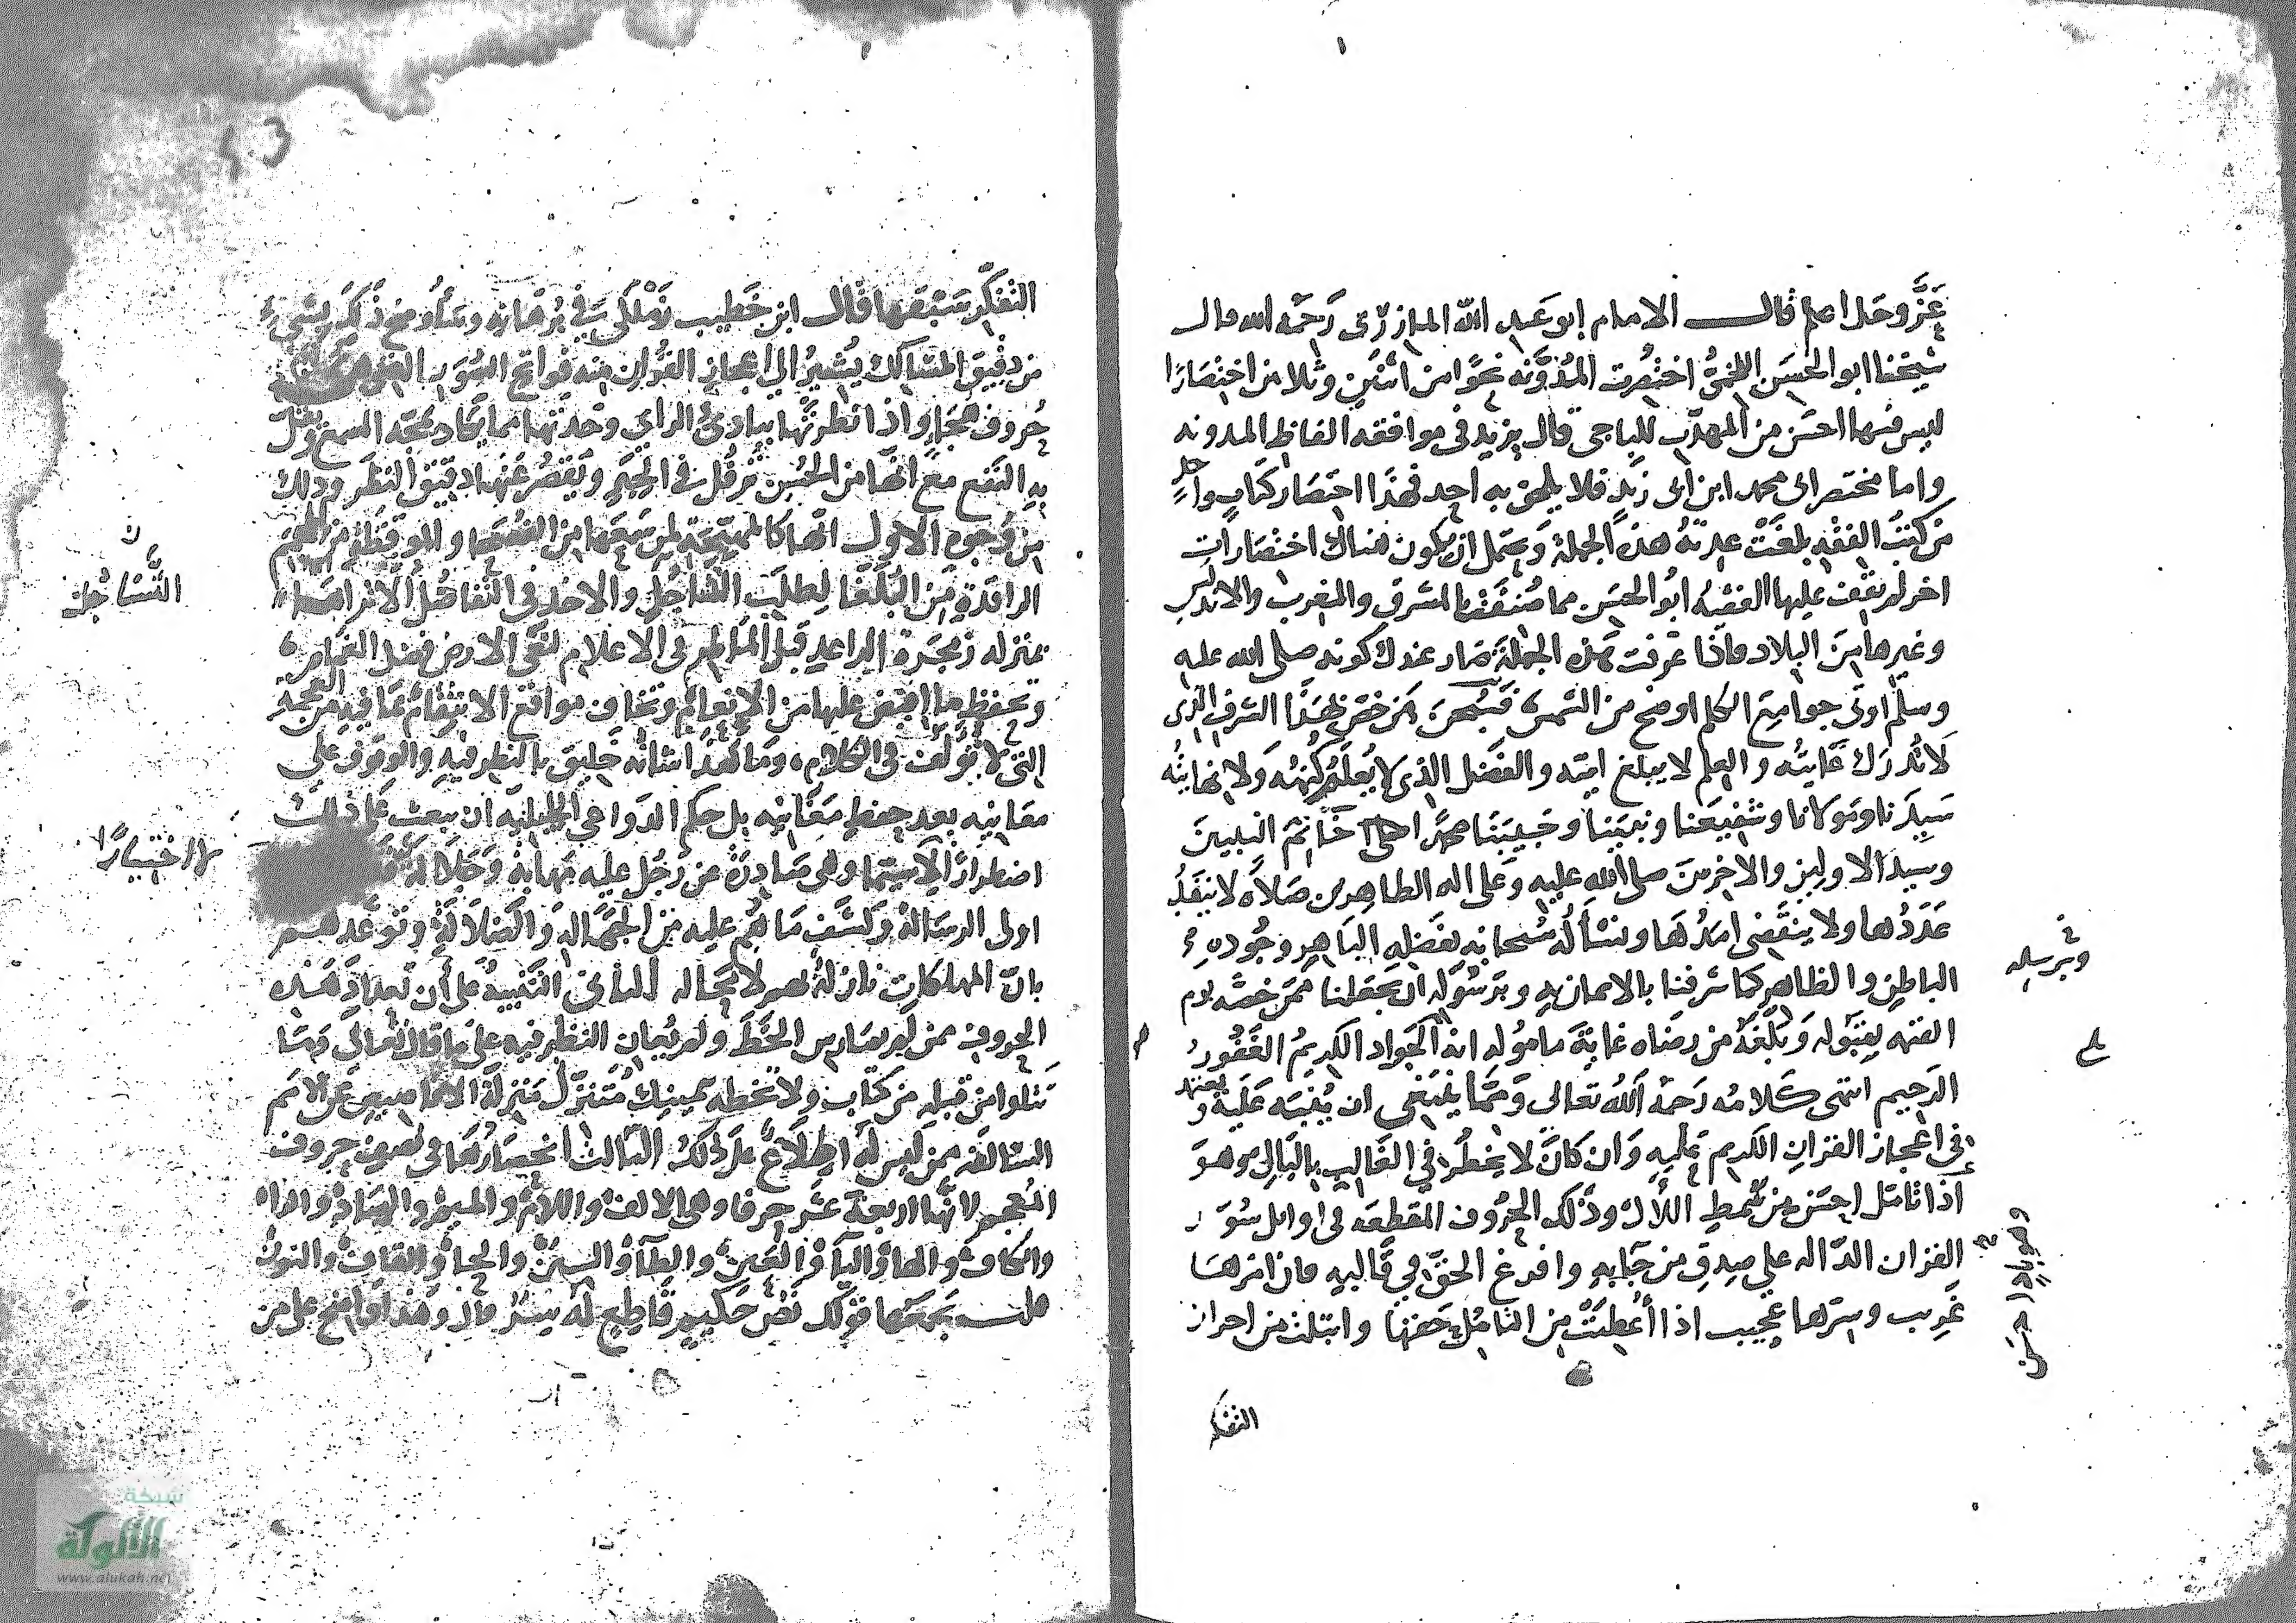 عَزَّ وجَل اعلم قال الامام ابو عبد الله المازري رَحمَه الله قال
شيخنا ابو الحسَن اللخمىُّ اختُصِرت المُدَوَّنه نحوًا من اثنَين وثلاثين اختصَارًا
ليس فيها احسَن من المهذّب للباجى قال يزيد فى موافقه الفاظ المدونه
واما مختصر ابى محمد ابن ابى زَيد فلا يلحق به احد فهذَا اختصَار كتابٍ واحدٍ
من كتب الفقه بلغَتْ عدته هذه الجملة وَيحتمل ان يكون هناك اختصَارات
اخر لم يقف عليها الفقيهُ ابُو الحسَن مما صُنف بالمشرق والمغرب والاندلس
وغيرها من البلاد فاذا عرفت هذه الجملَة صَار عندك كونه صلى الله عليه
وسلّم اوتى جوامع الكلم اوضح من الشمس فسُبحن مَن خصّ بهَذا الشرف الذى
لَا تُدرَك غَايتُه والعِلم لا يبلغ امَدَه والفَضل الذى لا يُعلَمُ كُنهُه وَلا نهايتُه
سَيِّدنا ومَولانا وشفيعنا ونبيّنا وحَبيبَنَا محمدًا خَاتم النبيينَ
وسيد الاولين والاخرين صلى الله عليه وعَلى اله الطاهرين صَلاَه لا ينفَدُ
عَدَدُها ولا ينقَضِى امَدُهَا ونسْألُه سُبحانه بفَضلِه البَاهر وجُوده
البَاطِن والظاهِر كما شرفنا بالايمان به وبرَسُوله ان يجعَلنا ممَّن خصَّه يوم
الفتنه بقبُوله وَبلّغَهُ من رضَاه غايَةَ مامُوله انه الجَواد الكريمُ الغَفُورُ
الرَحيم انتهى كَلامُه رَحمَهُ اللهُ تعالى وَممَّا يَنبَغى ان يُنبَه عَلَيه ويعتمد
فى اعجاز القران الكريم عَلَيه وَان كان لا يخطر في الغَالب بالبَالِ وهو
اذا تامّل احسَن من سُمطِ اللَأل وذَلك الحُرُوف المقطعَه فى اوايل سُوَر
القران الدّاله على صِدقِ من جَا به وافرغ الحَقّ في قَالبِه فان امرهَا
غَريب وسِرّها عَجيب اذا أُعطيَتْ من التامُل حَقهَا وابتلت من احراز
التفكر
وبرسله
وهو بادٍ احسَن
التفكر سَبَقها قال ابن خَطيب زَمْلَكَى في بُرهَانه وسَاُوضح ذَلكَ بشيء
من دقيق المسَالك يُشيرُ الى اعجاز القُران منه فواتح السُوَر
حُروف هجَاءٍ واذا نظرتَها ببادئ الراي وجَدتها مما يكاد يمجّه السمع ويقلّ
به النَفع مع انّهَا من الحُسن ترفُل فى الحِبَر وَيَقصُر عَنها دقيق النظَر وذلك
من وُجوه الاول انها كالمهيّجَة لمن سَمعَها من الفُصَحا والموقظة من الهِمَم
الراقدَة مِن البُلَغَا لِطلَب التسَاجُل والاخذ فى التفاضُل الا تراها
بمنزله زَمجَرة الراعد قبل الماطر فى الاعلام لتعى الارض فضل الغمام
وتحفظ ما افيض عليها من الانعام وتخاف مواقع الانتقام بمَا فيه من العجمه
التى لا تؤلَف فى الكلام ومَا هَذا شانُه خَليق بالنظر فيه والوقوف على
معَانيه بعد حفظ مَبَانيه بل حكم الدَواعى الجليليّه ان يبعث على ذلك
اضطرارًا لاسيّما وهى صَادرَة عن رَجُل عليه مَهابَة وَجَلالة
اولى الرسَالة وكشَف ما هُم عليه من الجَهَاله وَالضلَالَة وتوعّدهم
بانّ المهلكات نازلةٌ بهم لا محَاله الثانى التنبيه عَلى أن تعداد هَذه
الحروف ممن لم يمارس الخَطّ ولم يُعان النظر فيه على ما قال تعالى ومَا
تَتلوا من قبله من كتَاب ولا تخطه بيمينك مُتَنزّل مَنزلة الاقاصيص عن الامَم
السَالفه ممن ليس له اطّلاع على ذَلكَ الثالث انحصَارُهَا فى نصف حروف
المُعجم لانَّها اربعَة عَشر حرفا وهى الالف واللامُ والميمُ والصَادُ والراء
والكاف والهاء والياء والعين والطاء والسين والحاء والقاف والنون
قلت يجمَعُها قولك نَصّ حَكيم قَاطع له سِرّ قال وهَذا واضح على من
التَّسَاجُل
لا اختيارًا
شبكة
الألوكة
www.alukah.net